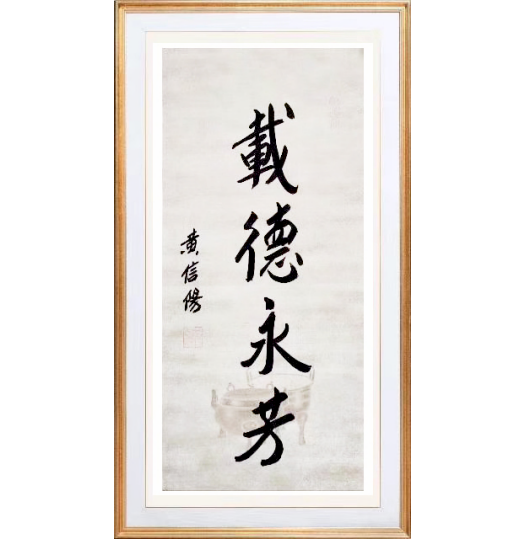 載德永芳
黄信陽